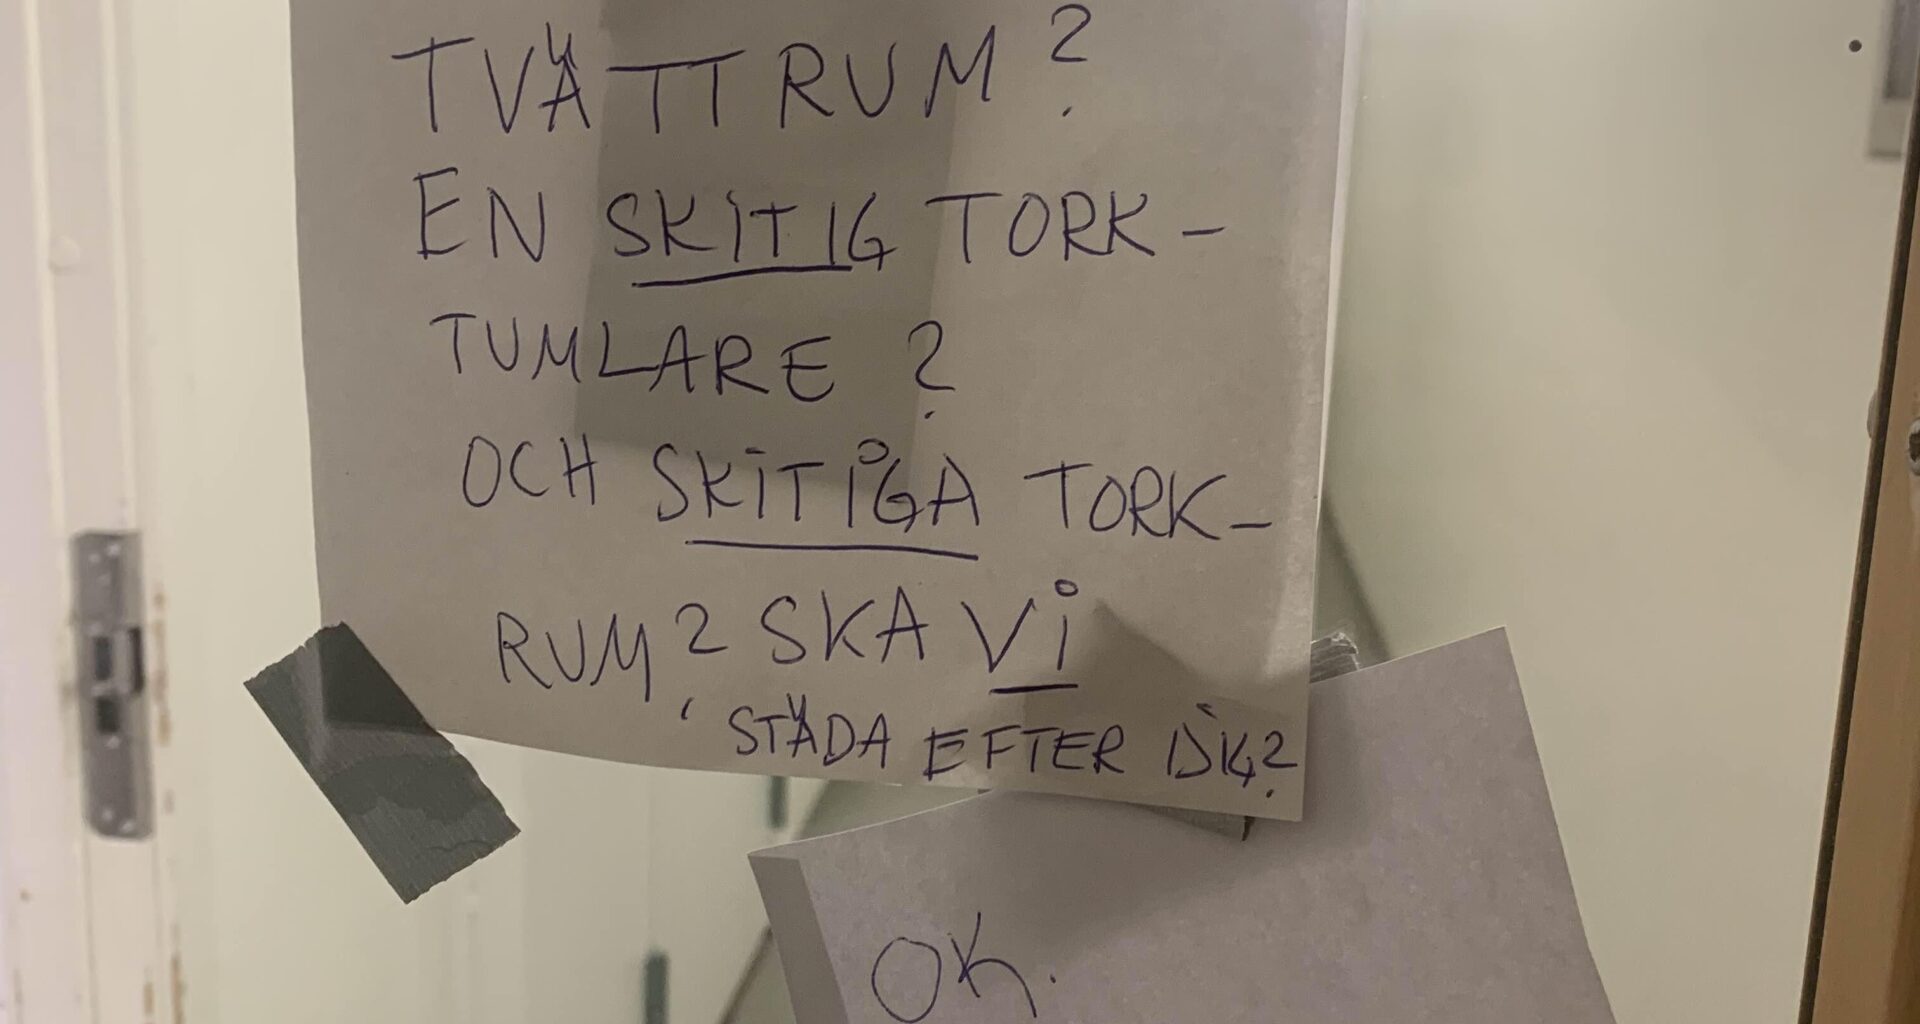 TVÄTTRUM?
EN SKITIG TORK-
TUMLARE?
OCH SKITIGA TORK-
RUM? SKA VI
STÄDA EFTER DIG?
OK.